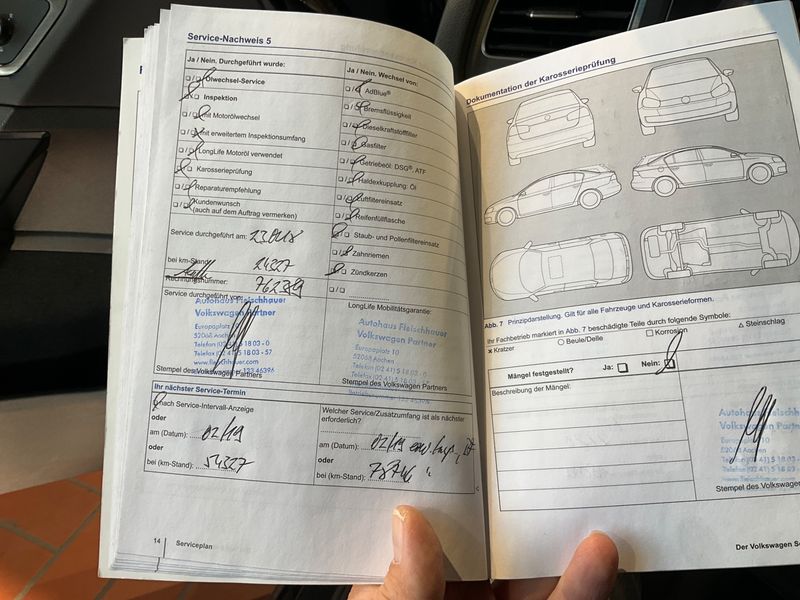 Service-Nachweis 5
Ja / Nein. Durchgeführt wurde:
Ölwechsel-Service
Inspektion
mit Motorölwechsel
mit erweitertem Inspektionsumfang
LongLife Motoröl verwendet
Karosserieprüfung
Reparaturempfehlung
Kundenwunsch
(auch auf dem Auftrag vermerken)
Service durchgeführt am:
bei km-Stand:
Rechnungsnummer:
Service durchgeführt von:
Autohaus Fleischhauer
Volkswagen Partner
Europaplatz 10
52068 Aachen
Telefon (02 41) 5 18 03 - 0
Telefax (02 41) 5 18 03 - 57
www.fleischhauer.com
Stempel des Volkswagen Partners
Ja / Nein. Wechsel von:
AdBlue®
Bremsflüssigkeit
Dieselkraftstofffilter
Gasfilter
Getriebeöl: DSG®, ATF
Haldexkupplung: Öl
Luftfiltereinsatz
Reifenfüllflasche
Staub- und Pollenfiltereinsatz
Zahnriemen
Zündkerzen
LongLife Mobilitätsgarantie:
Autohaus Fleischhauer
Volkswagen Partner
Europaplatz 10
52068 Aachen
Stempel des Volkswagen Partners
Ihr nächster Service-Termin
nach Service-Intervall-Anzeige
oder
am (Datum): 02/19
oder
bei (km-Stand): 54327
Welcher Service/Zusatzumfang ist als nächster
erforderlich?
am (Datum): 02/19
oder
bei (km-Stand):
14 Serviceplan
Dokumentation der Karosserieprüfung
Abb. 7 Prinzipdarstellung. Gilt für alle Fahrzeuge und Karosserieformen.
Ihr Fachbetrieb markiert in Abb. 7 beschädigte Teile durch folgende Symbole:
× Kratzer ○ Beule/Delle □ Korrosion △ Steinschlag
Mängel festgestellt? Ja: Nein:
Beschreibung der Mängel:
Volkswagen Partner
Europaplatz 10
52068 Aachen
Stempel des Volkswagen
Der Volkswagen